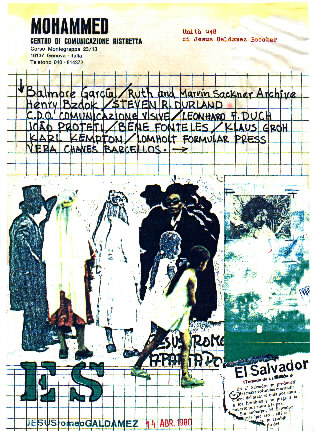 MOHAMMED
CENTRO DI COMUNICAZIONE RISTRETTA
Corso Montegrappa 23/13
16137 Genova - Italia
Telefono 010 -
di Jesus Galdamez Escobar
Balmore García / Ruth and Marvin Sackner Archive
Henry Bzdok / STEVEN R. DURLAND
C.D.O. COMUNICAZIONE VISIVE / LEONHARD F. DUCH
JOÃO PROTETI / BENE FONTELES / KLAUS GROH
KARL KEMPTON / LOMHOLT FORMULAR PRESS
VERA CHAVES BARCELLOS. →
El Salvador
ES
JESUS romeo GALDAMEZ 14 ABR. 1980